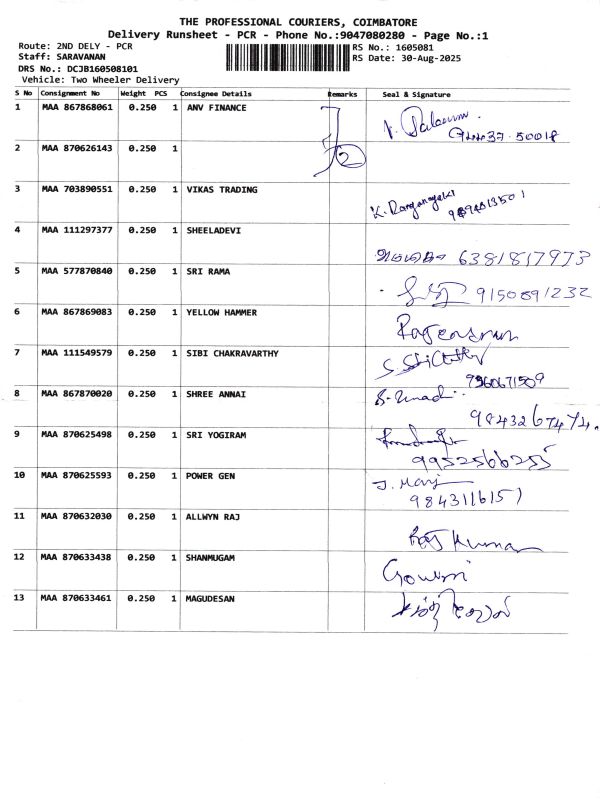 THE PROFESSIONAL COURIERS, COIMBATORE
Delivery Runsheet - PCR - Phone No.:9047080280 - Page No.:1
Route: 2ND DELY - PCR
RS No.: 1605081
Staff: SARAVANAN
RS Date: 30-Aug-2025
DRS No.: DCJB160508101
Vehicle: Two Wheeler Delivery
S No Consignment No Weight PCS Consignee Details Remarks Seal & Signature
1 MAA 867868061 0.250 1 ANV FINANCE
2 MAA 870626143 0.250 1
2
3 MAA 703890551 0.250 1 VIKAS TRADING
K. Ranganayaki
4 MAA 111297377 0.250 1 SHEELADEVI
6381817973
5 MAA 577870840 0.250 1 SRI RAMA
9150891232
6 MAA 867869083 0.250 1 YELLOW HAMMER
7 MAA 111549579 0.250 1 SIBI CHAKRAVARTHY
8 MAA 867870020 0.250 1 SHREE ANNAI
9843267474.
9 MAA 870625498 0.250 1 SRI YOGIRAM
9952566255
10 MAA 870625593 0.250 1 POWER GEN
9843116151
11 MAA 870632030 0.250 1 ALLWYN RAJ
Raj Kumar
12 MAA 870633438 0.250 1 SHANMUGAM
Gowri
13 MAA 870633461 0.250 1 MAGUDESAN